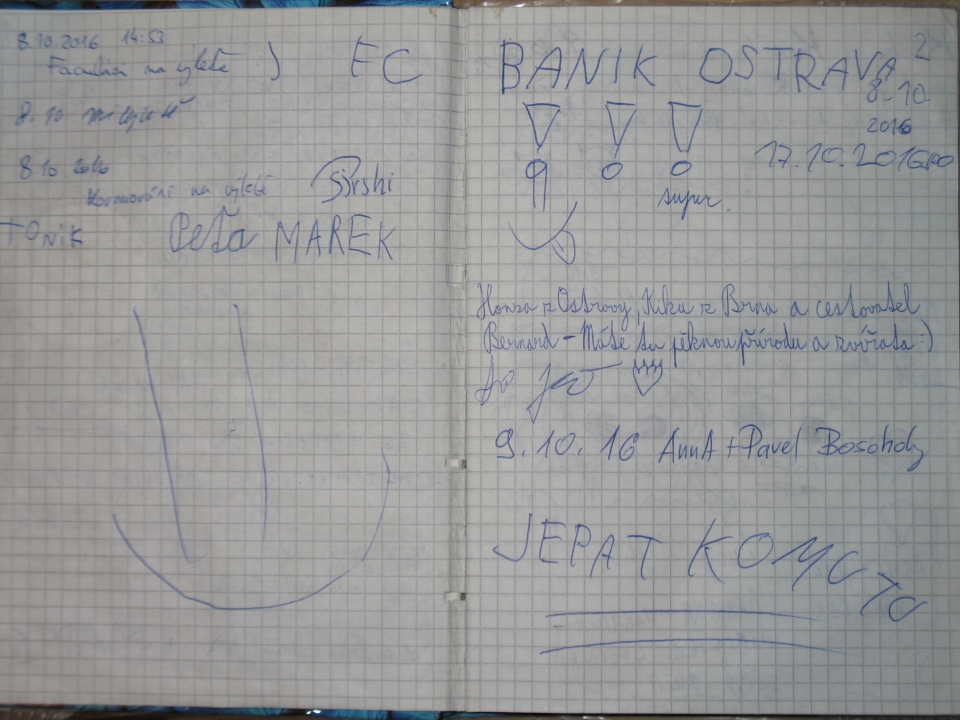 8.10.2016 14:53
na výletě :)
8.10
8.10.2016
na výletě
TONiK Peťa MAREK
FC BANIK OSTRAVA 2
8.10
2016
17.10.2016
super.
Honza z Ostravy, Kika z Brna a cestovatel
Bernard – Máte tu pěknou přírodu a zvířata :)
9.10.16 AnnA + Pavel
JEPAT KOMUTO